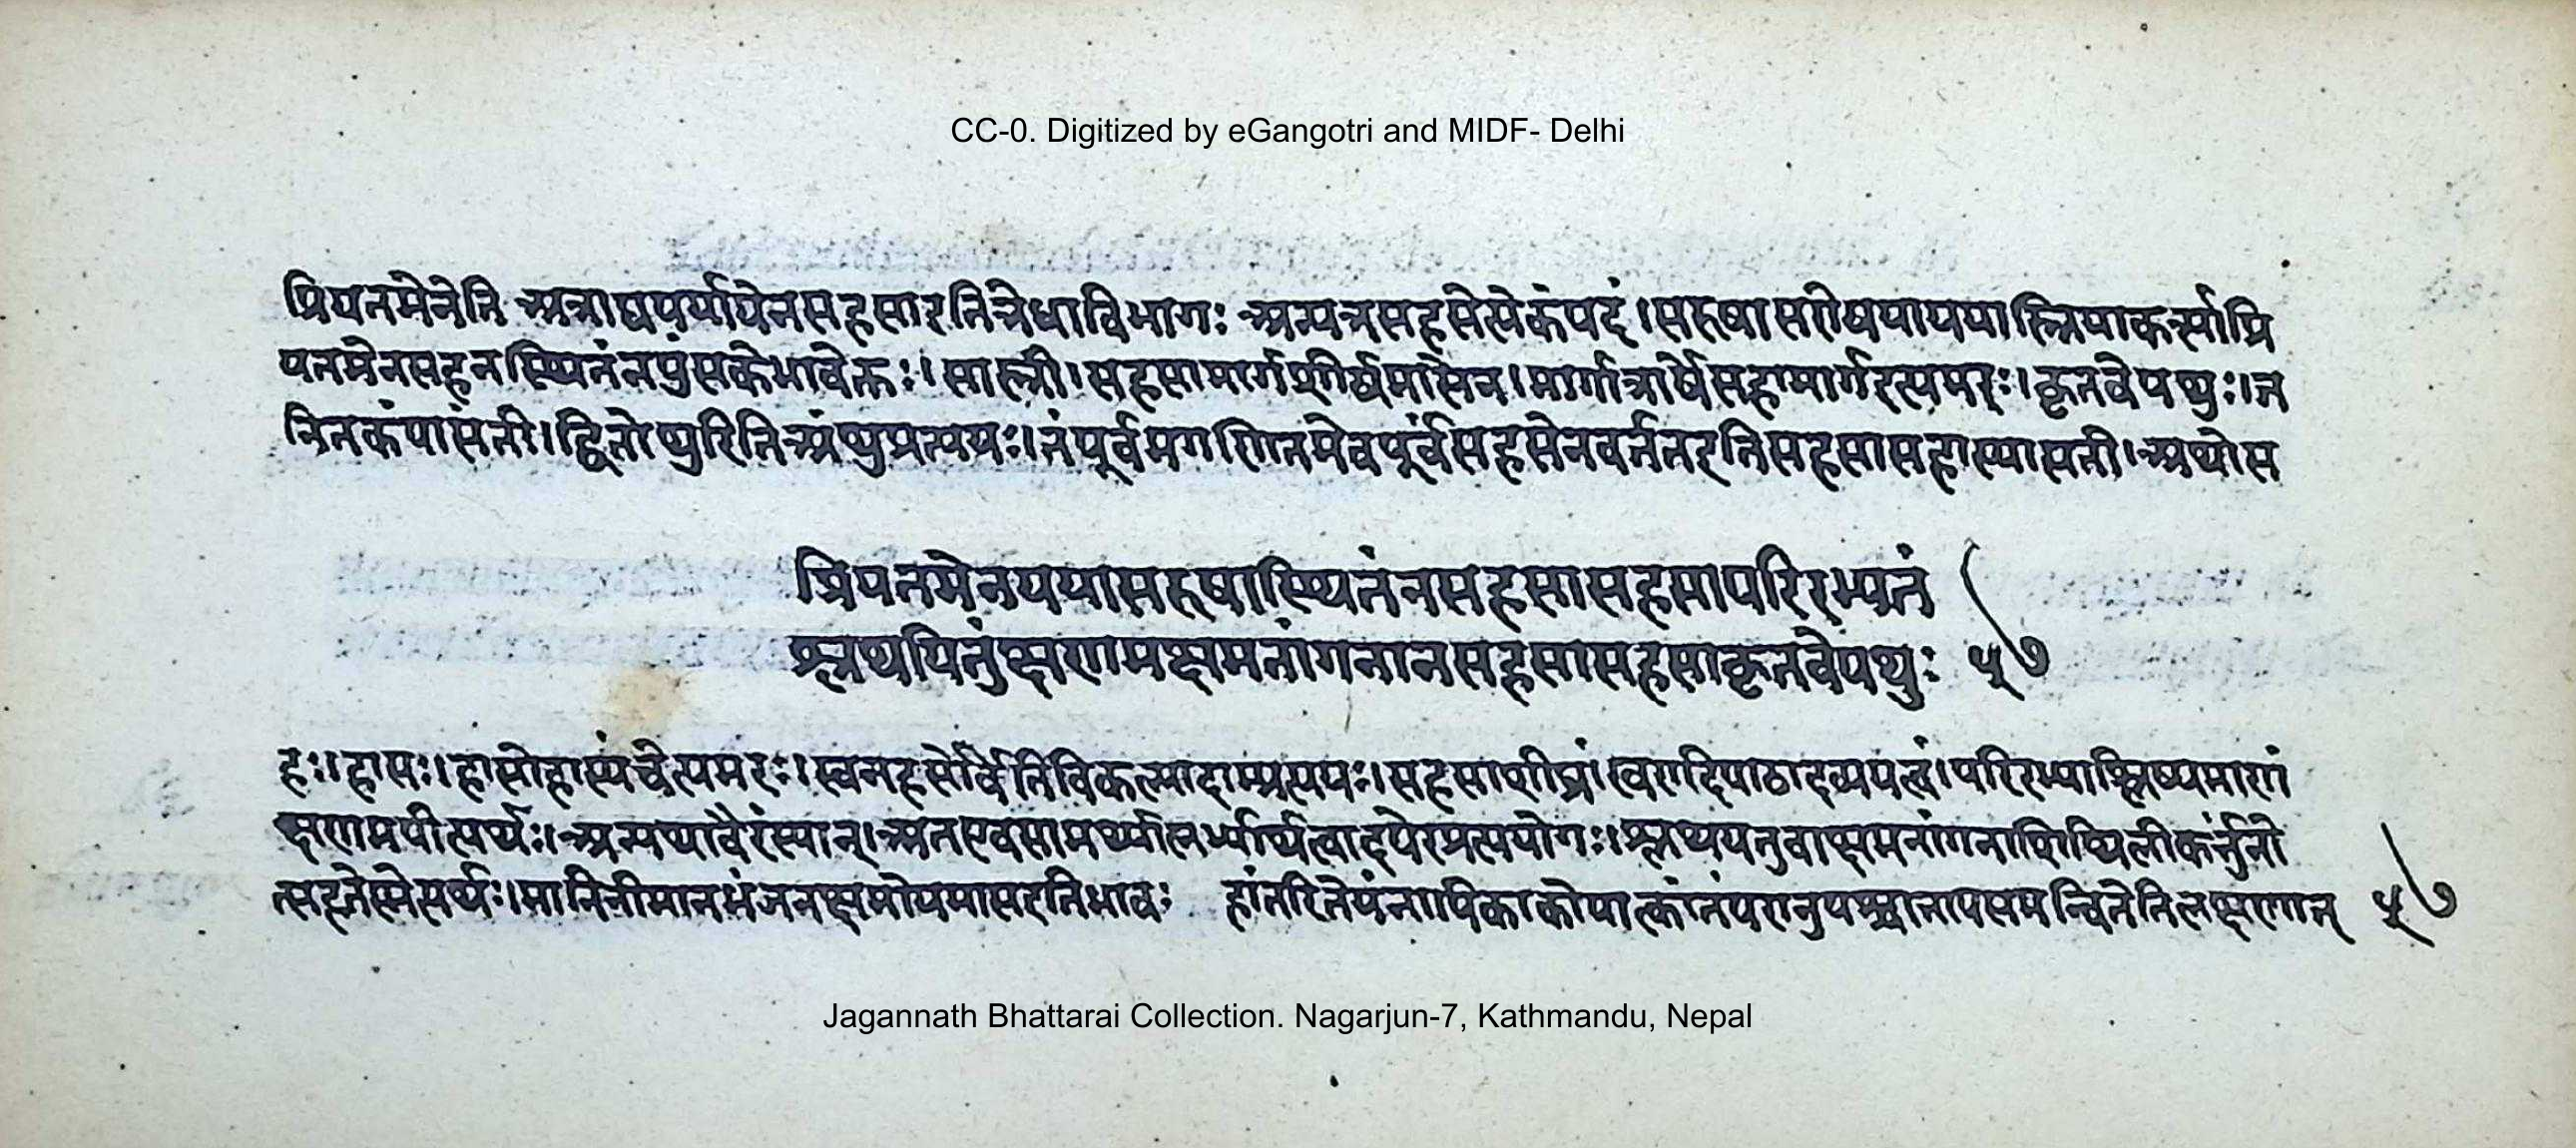 CC-0. Digitized by eGangotri and MIDF- Delhi
प्रियतमेनेति अत्राद्यपर्यायेनसहसारतित्रेधाविभागः अन्यत्रसहसेत्येकंपदं।सरुषासरोषयायययास्त्रियाकर्त्र्याप्रि
यतमेनसहनस्थितंनपुंसकेभावेक्तः।सास्त्री।सहसामार्गशीर्षमासेन।मार्गात्रार्षेसहामार्गरत्यमरः।कृतवेपथुः।ज
नितकंपासती।द्वितोथुरितिअंथुप्रत्ययः।तंपूर्वमगणितमेवपूर्वंसहसेनवर्ततरतिसहसासहास्यासती।अथोस
प्रियतमेनययासरुषास्थितंनसहसासहसापरिरभ्यतं
श्लथयितुंक्षणमक्षमतांगनानसहसासहसाकृतवेपथुः ५७
हः।हासः।हासोहास्यंचेत्यमरः।स्वनहसोर्वेतिविकल्पादाम्प्रत्ययः।सहसाशीघ्रं।स्वरादिपाठादव्ययत्वं।परिरभ्याश्लिष्यमाणं
क्षणमपीत्यर्थः।अन्यथावैरंस्यात्।अतएवसामर्थ्यालर्भ्यार्थत्वादपेरप्रत्ययोगः।श्लथयनुवाक्षमतांगनाशिथिलीकर्त्तुंनो
त्सहतेस्मेत्यर्थः।मानिनीमानभंजनक्षमोयमासरतिभावः हांतरितेयंनायिकाकोपात्कांतंपरानुयश्चातापसमन्वितेतिलक्षणात् ५७
Jagannath Bhattarai Collection. Nagarjun-7, Kathmandu, Nepal